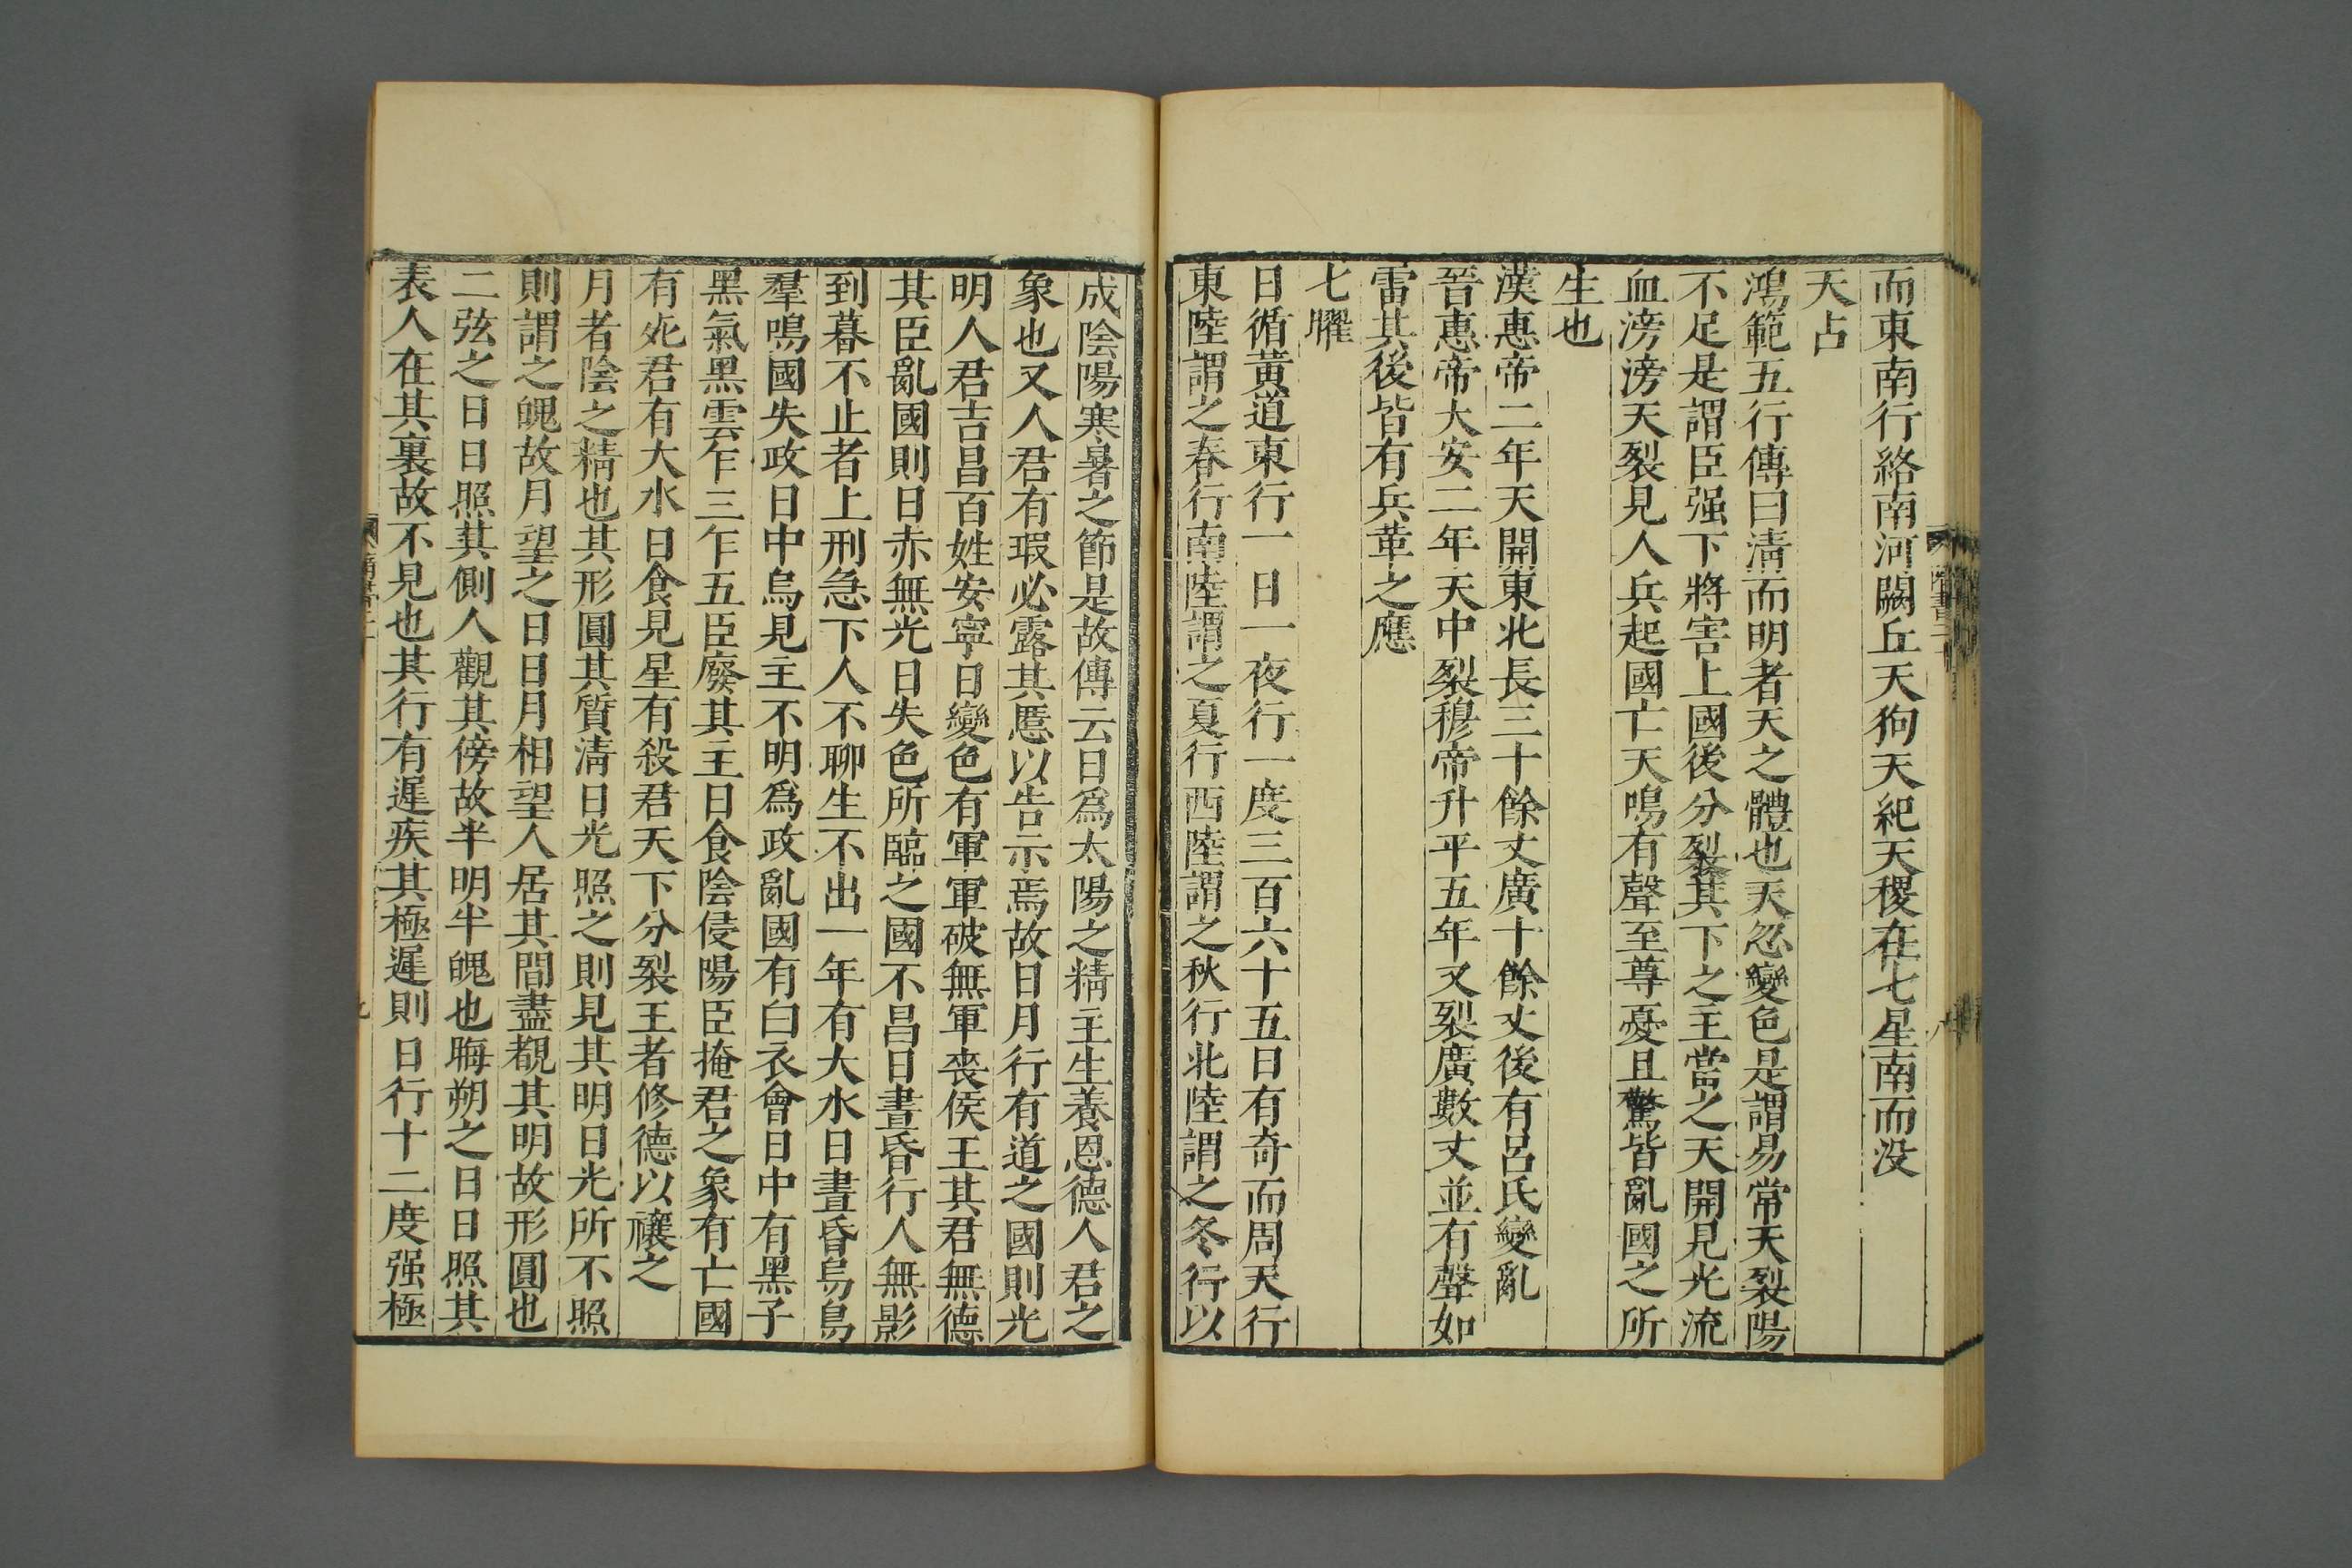 而東南行絡南河闕丘天狗天紀天稷在七星南而没
天占
鴻範五行傳曰淸而明者天之體也天忽變色是謂易常天裂陽
不足是謂臣强下將害上國後分裂其下之主當之天開見光流
血滂滂天裂見人兵起國亡天鳴有聲至尊憂且驚皆亂國之所
生也
漢惠帝二年天開東北長三十餘丈廣十餘丈後有呂氏變亂
晉惠帝大安二年天中裂穆帝升平五年又裂廣數丈並有聲如
雷其後皆有兵革之應
七曜
日循黃道東行一日一夜行一度三百六十五日有奇而周天行
東陸謂之春行南陸謂之夏行西陸謂之秋行北陸謂之冬行以
成陰陽寒暑之節是故傳云日爲太陽之精主生養恩德人君之
象也又人君有瑕必露其慝以告示焉故日月行有道之國則光
明人君吉昌百姓安寧日變色有軍軍破無軍喪侯王其君無德
其臣亂國則日赤無光日失色所臨之國不昌日晝昏行人無影
到暮不止者上刑急下人不聊生不出一年有大水日晝昏烏鳥
羣鳴國失政日中烏見主不明爲政亂國有白衣會日中有黑子
黑氣黑雲乍三乍五臣廢其主日食陰侵陽臣掩君之象有亡國
有死君有大水日食見星有殺君天下分裂王者修德以禳之
月者陰之精也其形圓其質淸日光照之則見其明日光所不照
則謂之魄故月望之日日月相望人居其間盡覩其明故形圓也
二弦之日日照其側人觀其傍故半明半魄也晦朔之日日照其
表人在其裏故不見也其行有遲疾其極遲則日行十二度强極